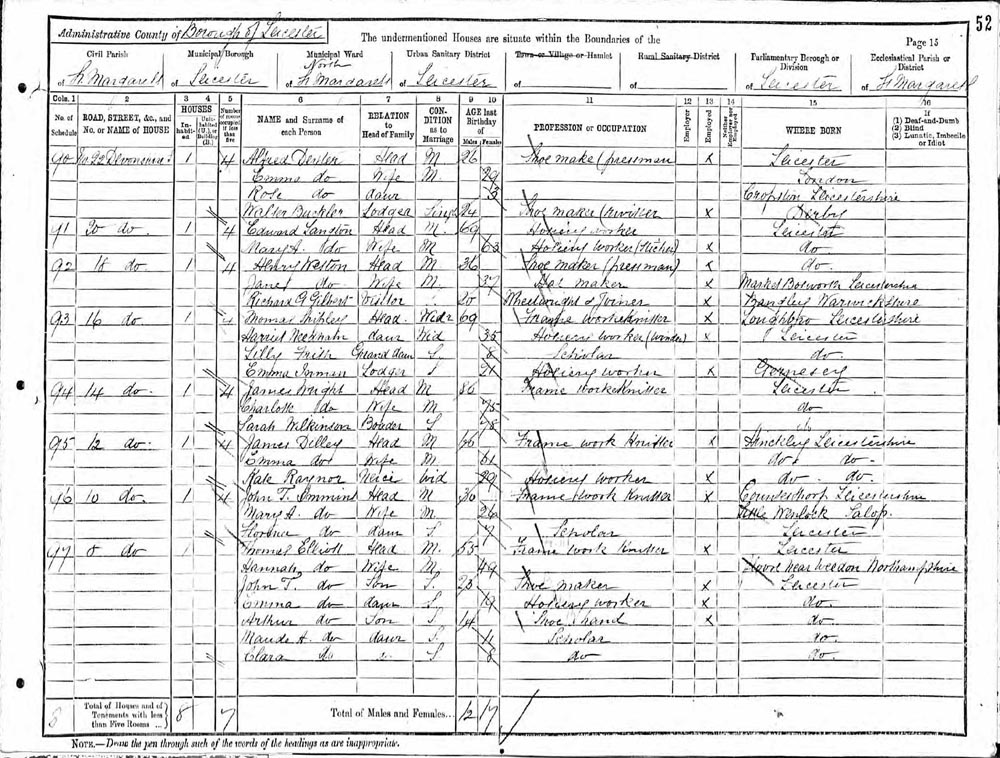 52
Administrative County of Borough of Leicester The undermentioned Houses are situate within the Boundaries of the Page 15
Civil Parish Municipal Borough Municipal Ward Urban Sanitary District Town or Village or Hamlet Rural Sanitary District Parliamentary Borough or Division Ecclesiastical Parish or District
of St Margarets of Leicester of North St Margarets of Leicester of of of Leicester of St Margarets
Cols. 1 2 3 4 5 6 7 8 9 10 11 12 13 14 15 16
No. of Schedule ROAD, STREET, &c., and No. or NAME of HOUSE HOUSES Inhabited Uninhabited (U.), or Building (B.) Number of rooms occupied if less than five NAME and Surname of each Person RELATION to Head of Family CONDITION as to Marriage AGE last Birthday of Males Females PROFESSION or OCCUPATION Employer Employed Neither Employer nor Employed WHERE BORN If (1) Deaf-and-Dumb (2) Blind (3) Lunatic, Imbecile or Idiot
90 22 1 4 Alfred Head M 26 Shoe make (pressman) x Leicester
Emma do Wife M. 29 London
Rose do daur 3 Cropston Leicestershire
Walter Buckler Lodger Singl 24 Shoe maker (rivitter x Derby
91 20 do 1 4 Edward Langton Head M. 69 Hosiery worker Leicester
Mary A. do Wife M 63 Hosiery Worker (Sticher) x do
92 18 do 1 4 Henry Weston Head M 36 Shoe maker (pressman) x do.
Jane do Wife M. 37 maker x Market Bosworth Leicestershire
Richard G Gilbert Visitor 20 Wheelwright & Joiner x Warwickshire
93 16 do 1 4 Thomas Shipley Head Widr 69 Frame Worke Knitter x Loughbro Leicestershire
Harriet daur Wid 35 Hosiery worker (Winder) x Leicester
Lilly Grand daur S 8 Scholar do.
Emma Inman Lodger S 21 Hosiery worker x
94 14 do. 1 4 James Wright Head M 86 Frame Worke Knitter Leicester
Charlotte do Wife M 75 do
Sarah Wilkinson Boader S 78
95 12 do. 1 4 James Dilley Head M 66 Frame work Knitter x Hinckley Leicestershire
Emma do Wife M. 61 do do.
Kate Raynor Neice Wid 29 Hosiery Worker x do. do.
96 10 do 1 4 John T. Timmins Head M 30 Frame Work Knitter x Countesthorp Leicestershire
Mary A. do Wife M 26 Little Wenlock Salop.
do daur S. 7 Scholar Leicester
97 8 do 1 Thomas Elliott Head M. 55 Frame Work Knitter x Leicester
Hannah do Wife M. 49 near Weedon Northampshire
John T. do Son S. 23 Shoe maker x Leicester
Emma do daur S 19 Hosiery worker x do.
Arthur do Son S 14 Shoe hand x do
Maude A. do daur S. 11 Scholar do.
Clara do S 8 do do.
8 Total of Houses and of Tenements with less than Five Rooms ... 8 7 Total of Males and Females... 12 17
NOTE.—Draw the pen through such of the words of the headings as are inappropriate.